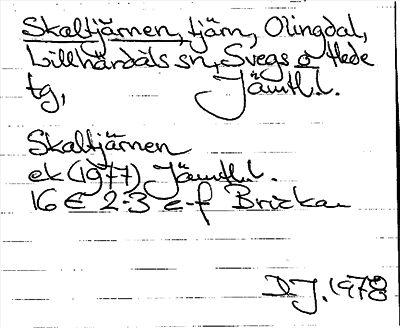 Skaltjärnen, tjärn, Olingdal,
Lillhärdals sn, Svegs o Hede
tg, Jämtl.l.
Skaltjärnen
ek (1977) Jämtl.l.
16 E 2-3 e-f Brickan
DJ. 1978